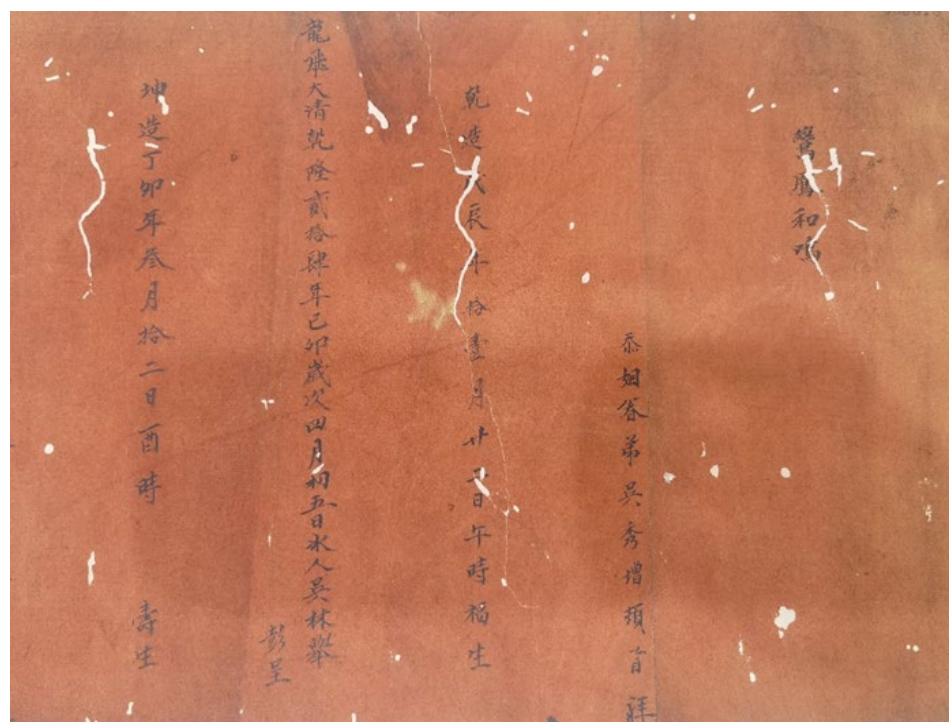 鸞鳳和鳴
忝姻眷弟吳秀增頓首拜
乾造戊辰年拾壹月廿二日午時福生
龍飛大清乾隆貳拾肆年己卯歲次四月初五日冰人吳林舉
彭呈
坤造丁卯年叁月拾二日酉時 壽生